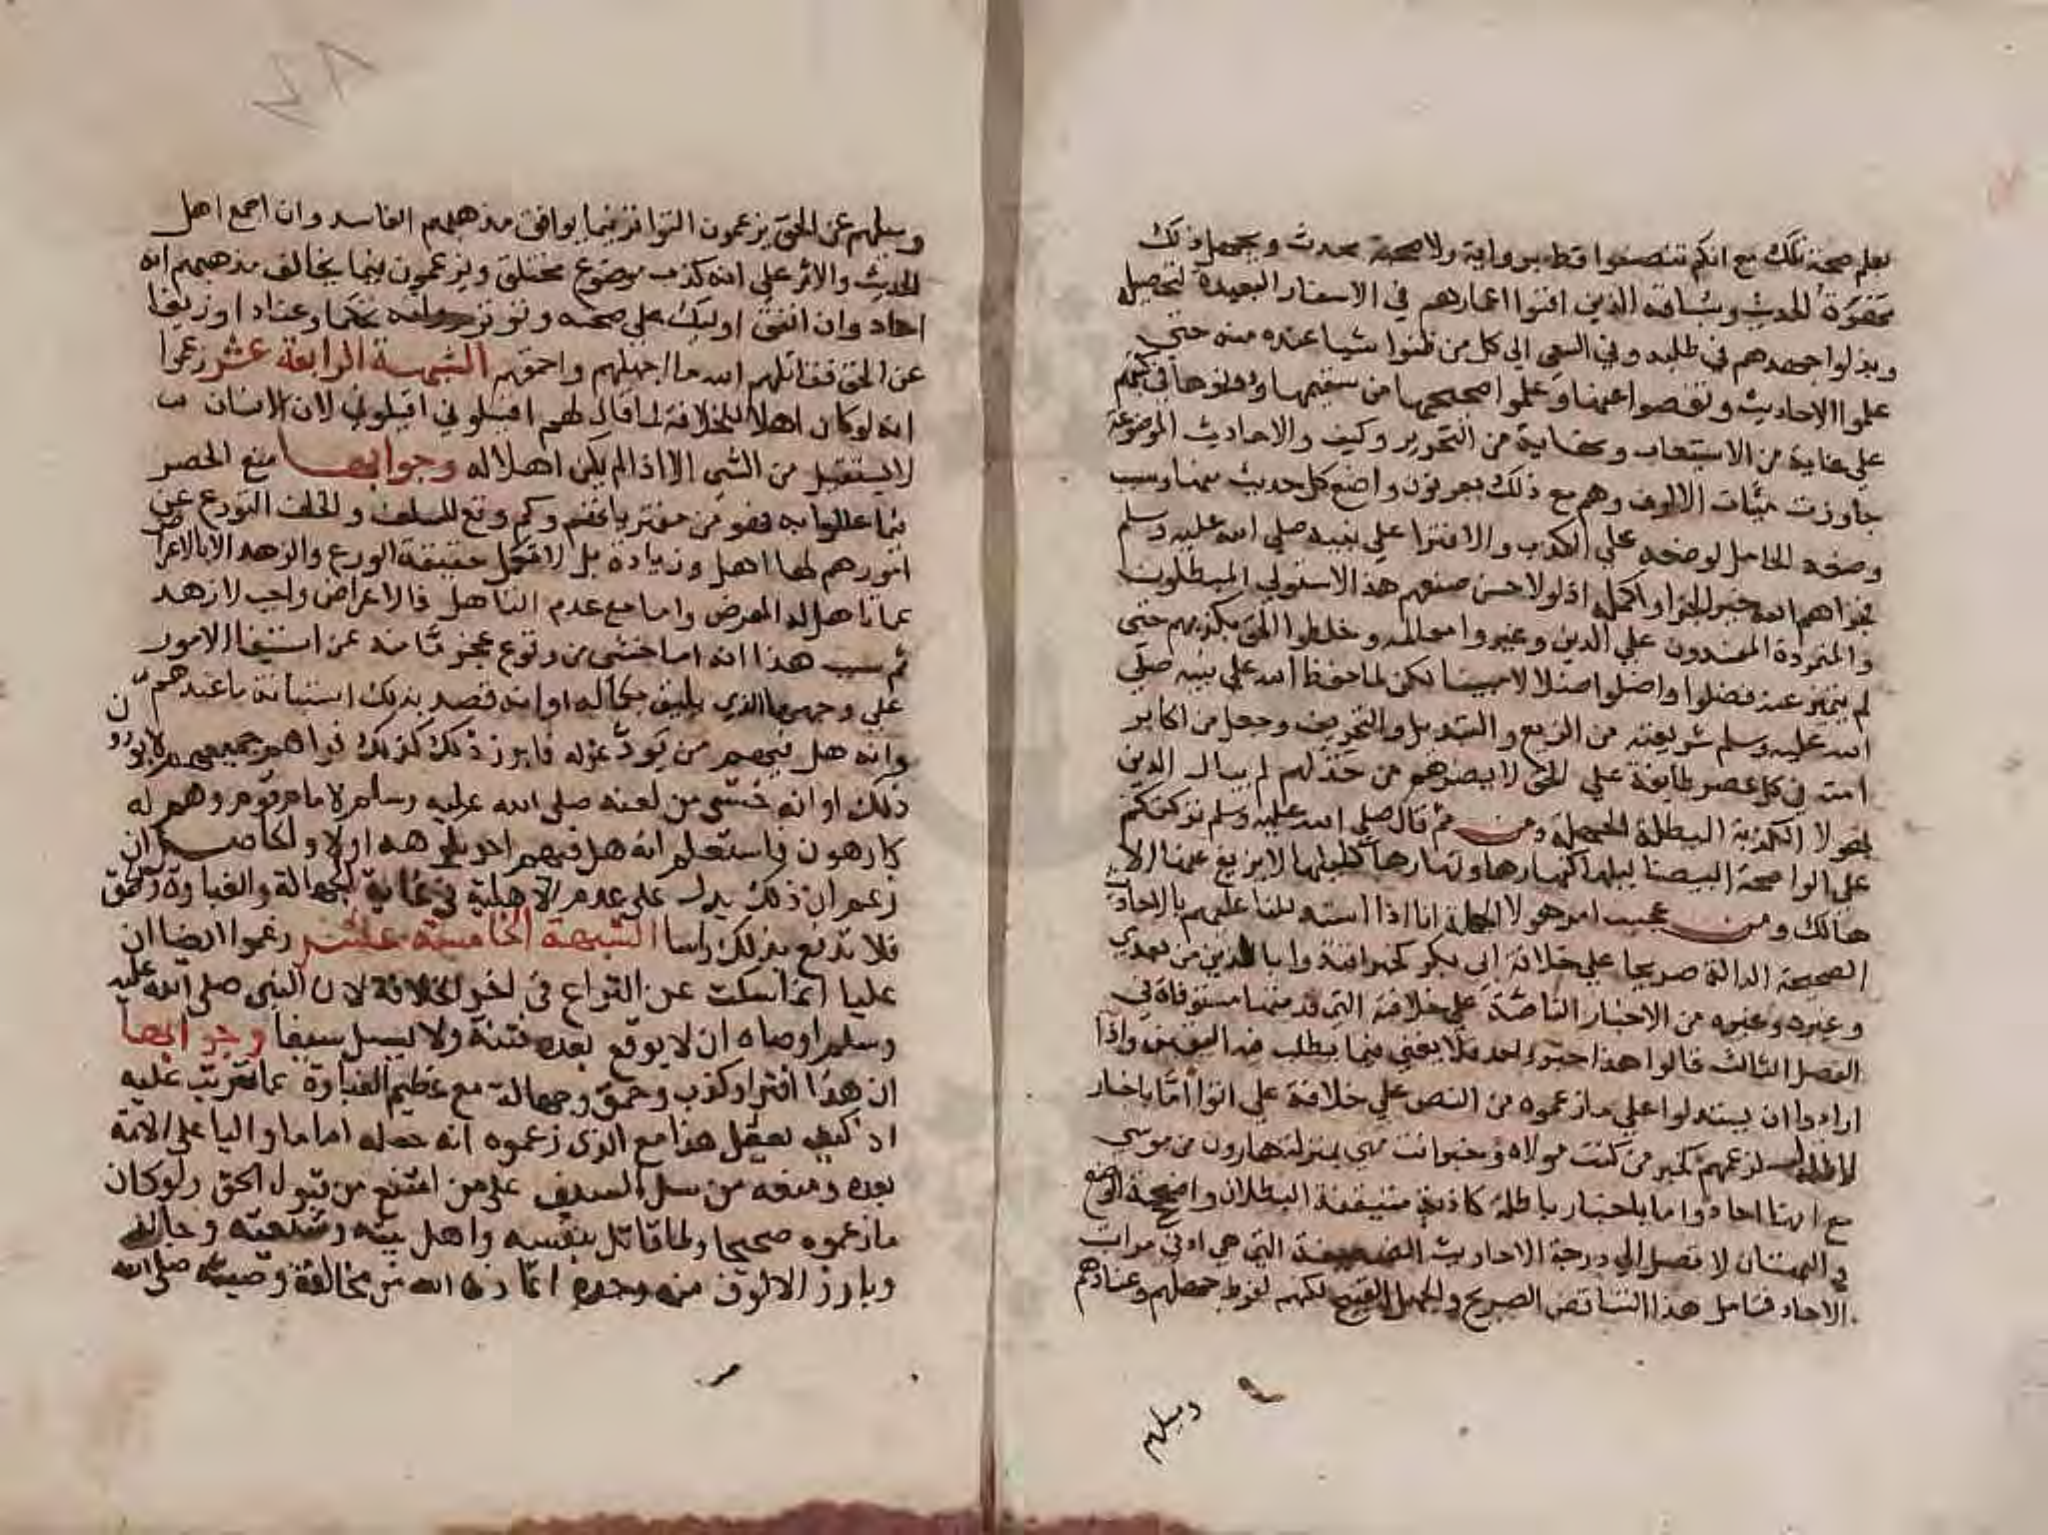 نعلم صحة تلك مع انكم تتصفوا قط برواية ولا صحبة محدث ويجهل ذلك
مهرة الحديث وسباقه الذين افنوا اعمارهم في الاسفار البعيدة لتحصيله
وبذلوا جهدهم في طلبه وفي السعي الي كل من ظنوا شيا عنده منه حتي
علموا الاحاديث ونقصوا عنها وعلموا صحيحها من سقيمها ودونوها في كتبهم
علي غاية من الاستيعاب ونهاية من التحرير وكيف والاحاديث الموضوعة
جاوزت ميات الالوف وهم مع ذلك يعرفون واضع كل حديث منها وسبب
وضعه الحامل لوضعه علي الكذب والافترا علي نبيه صلي الله عليه وسلم
فجزاهم الله خير الجزا واكمله اذ لولا حسن صنعهم هذا لاستولي المبطلون
والمتمردة المفسدون علي الدين وغيروا معالمه وخلطوا الحق بكذبهم حتي
لم يتميز عنه فضلوا واضلوا ضلالا مبينا لكن لما حفظ الله علي نبيه صلي
الله عليه وسلم شريعته من الزيغ والتبديل والتحريف وجعل من اكابر
امته في كل عصر طايفة علي الحق لا يضرهم من خذلهم لم يبال الدين
بهولا الكذبة البطلة الجهلة ومن ثم قال صلي الله عليه وسلم تركتكم
علي الواضحة البيضا ليلها كنهارها ونهارها كليلها لا يزيغ عنها الا
هالك ومن عجيب امر هولا الجهلة انا اذا استدللنا عليهم بالاحاديث
الصحيحة الدالة صريحا علي خلافة ابي بكر كخبر اقتدوا باللذين من بعدي
وغيره من الاخبار الناصة علي خلافته التي قدمتها مستوفاة في
الفصل الثالث قالوا هذا خبر واحد فلا يغني فيما يطلب فيه اليقين واذا
ارادوا ان يستدلوا علي ما زعموه من النص علي خلافة علي اتوا اما باخبار
لا تدل لزعمهم كخبر من كنت مولاه وخبر انت مني بمنزلة هارون من موسي
مع انها احاد واما باخبار باطلة كاذبة متيقنة البطلان واضحة الوضع
والبهتان لا تصل الي درجة الاحاديث الضعيفة التي هي ادني مراتب
الاحاد فتامل هذا التناقض الصريح والجهل القبيح لكنهم لفرط جهلهم وعنادهم
وميلهم
وميلهم عن الحق يزعمون التواتر فيما يوافق مذهبهم الفاسد وان اجمع اهل
الحديث والاثر علي انه كذب موضوع مختلق ويزعمون فيما يخالف مذهبهم انه
احاد وان اتفق اوليك علي صحته وتوتر رواته تحكما وعنادا وزيغا
عن الحق فقاتلهم الله ما اجهلهم واحمقهم الشبهة الرابعة عشر زعموا
انه لو كان اهلا للخلافة لما قال لهم اقيلوني اقيلوني لان الانسان
لا يستقيل من الشي الا اذا لم يكن اهلا له وجوابها منع الحصر
فيما عللوا به فهو من مفترياتهم وكم وقع للسلف والخلف التورع عن
امور هم لها اهل وزيادة بل لا تكمل حقيقة الورع والزهد الا بالاعراض
عما تاهل له المعرض واما مع عدم التاهل فالاعراض واجب لا زهد
ثم سبب هذا انه اما خشي من وقوع عجز ما منه عن استيفا الامور
علي وجهها الذي يليق بكماله او انه قصد بذلك استبانة ما عندهم
وانه هل فيهم من يود عزله فابرز ذلك كذلك فراهم جميعهم لا يودون
ذلك او انه خشي من لعنه صلى الله عليه وسلم لامام قوم وهم له
كارهون فاستعلم انه هل فيهم احد يكرهه اولا والحاصل ان
زعم ان ذلك يدل على عدم الاهلية في غاية الجهالة والغباوة والحمق
فلا ترفع بذلك راسا الشبهة الخامسة عشر زعموا ايضا ان
عليا انما سكت عن النزاع في امر الخلافة لان النبي صلى الله عليه
وسلم اوصاه ان لا يوقع بعده فتنة ولا يسل سيفا وجوابها
ان هذا افترا وكذب وحمق وجهالة مع عظيم الغباوة عما يترتب عليه
اذ كيف يعقل هذا مع الذي زعموه انه جعله اماما واليا على الامة
بعده ومنعه من سل السيف على من امتنع من قبول الحق ولو كان
ما زعموه صحيحا ولما قاتل بنفسه واهل بيته وشيعته وجالد
وبارز الالوف منهم وحده اعاذه الله من مخالفة وصيته صلى الله